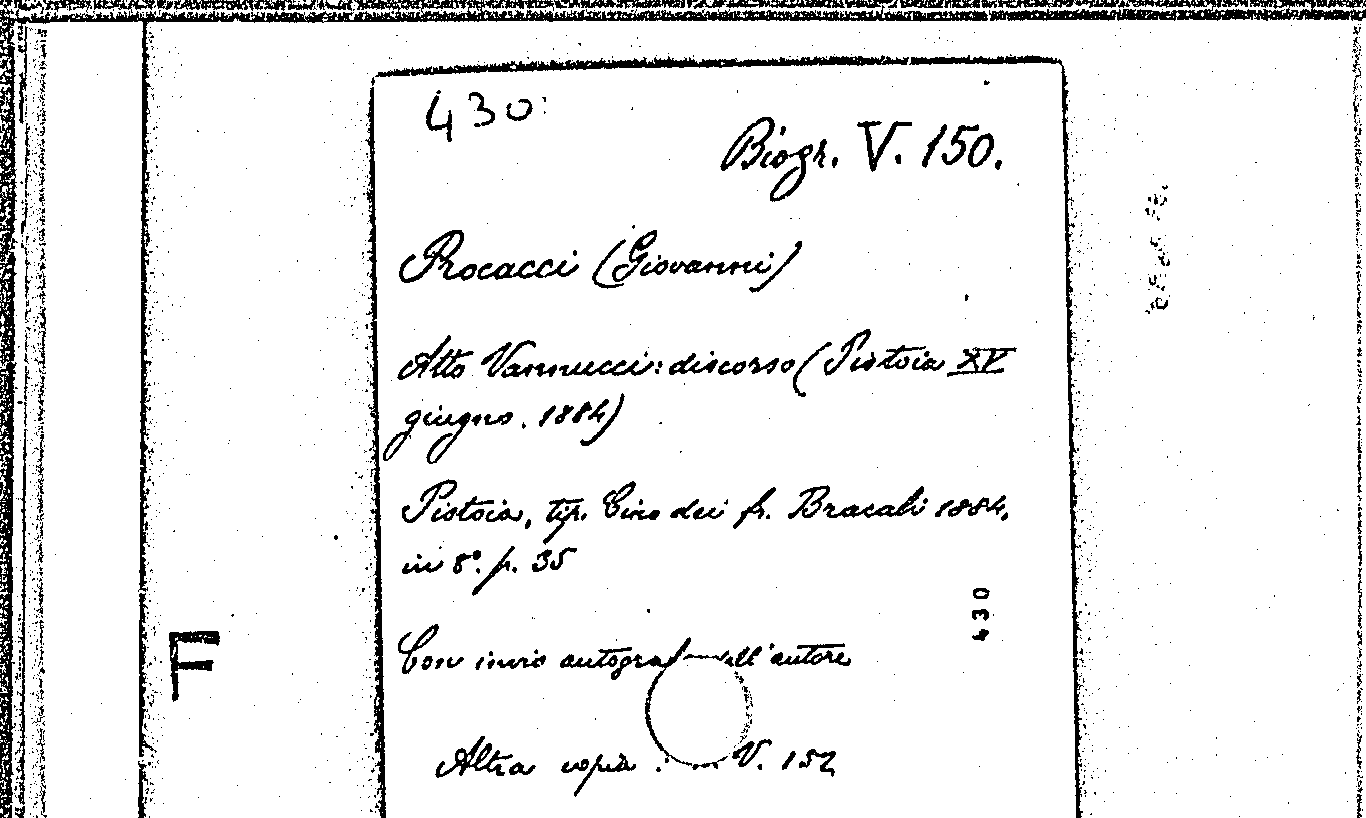 430
Biogr. V. 150.
Procacci (Giovanni)
Atto Vannucci: discorso (Pistoia XV
giugno. 1884)
Pistoia, tip. Cino dei fr. Bracali 1884,
in 8°. p. 35
430
F
Con invio dell'autore
Altra copia : V. 152